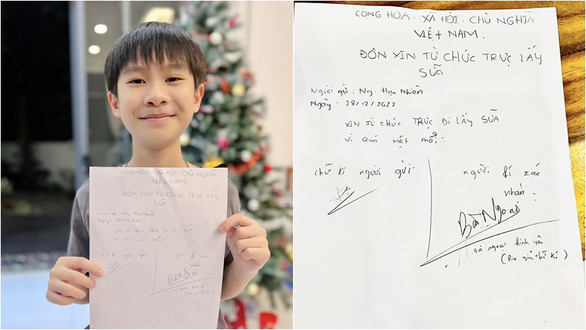 CỘNG HÒA XÃ HỘI CHỦ NGHĨA
VIỆT NAM.
ĐƠN XIN TỪ CHỨC TRỰC LẤY
SỮA
Người gửi : Ng. Hạo Nhiên
Ngày : 28/12/2022
XIN TỪ CHỨC TRỰC ĐI LẤY SỮA
vì quá mệt mỏi.
chữ kí người gửi
người kí xác
nhận :
Bà Ngoại
bà ngoại
chữ kí)